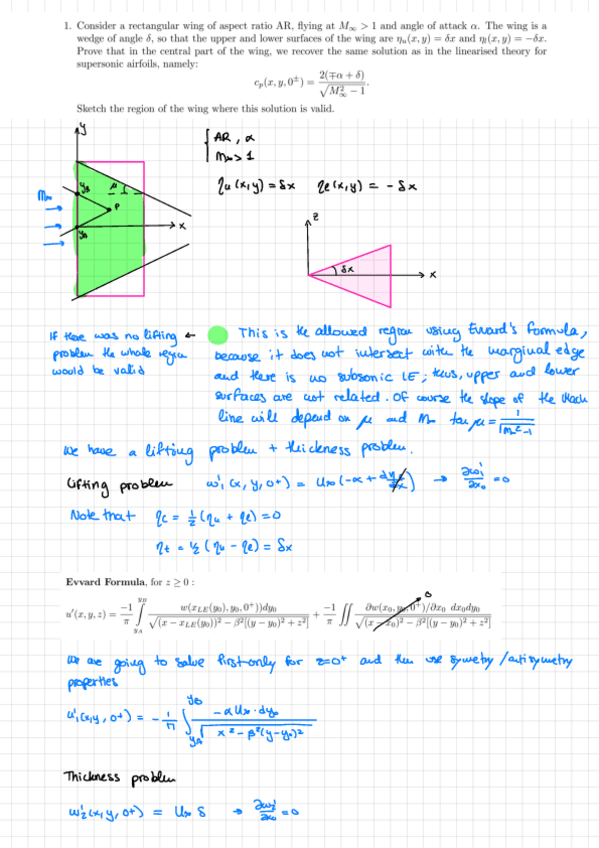 1. Consider a rectangular wing of aspect ratio AR, flying at M∞ > 1 and angle of attack α. The wing is a
wedge of angle δ, so that the upper and lower surfaces of the wing are ηu(x, y) = δx and ηl(x, y) = −δx.
Prove that in the central part of the wing, we recover the same solution as in the linearised theory for
supersonic airfoils, namely:
cp(x, y, 0±) = 2(∓α + δ) / √(M²∞ − 1).
Sketch the region of the wing where this solution is valid.
y
{ AR, α
M∞ > 1
ηu(x,y) = δx ηe(x,y) = −δx
M∞
yB
μ
P
x
yA
z
δx
x
If there was no lifting ←
problem the whole region
would be valid
This is the allowed region using Evvard's formula,
because it does not intersect with the marginal edge
and there is no subsonic LE; thus, upper and lower
surfaces are not related. Of course the slope of the Mach
line will depend on μ and M∞ tan μ = 1/√(M∞²−1)
We have a lifting problem + thickness problem.
Lifting problem w'1(x, y, 0+) = U∞(−α + dηc/dx) → ∂w'1/∂x0 = 0
Note that ηc = ½(ηu + ηe) = 0
ηt = ½(ηu − ηe) = δx
Evvard Formula, for z ≥ 0 :
u'(x, y, z) = −1/π ∫ yA yB w(xLE(y0), y0, 0+))dy0 / √((x − xLE(y0))² − β²[(y − y0)² + z²]) + −1/π ∬ ∂w(x0, y0, 0+)/∂x0 dx0dy0 / √((x − x0)² − β²[(y − y0)² + z²]) 0
We are going to solve first only for z=0+ and then use symetry/antisymetry
properties
u'1(x,y,0+) = −1/π ∫ yA yB −αU∞·dy0 / √(x² − β²(y−y0)²)
Thickness problem
w'2(x,y,0+) = U∞ δ → ∂w'2/∂x0 = 0